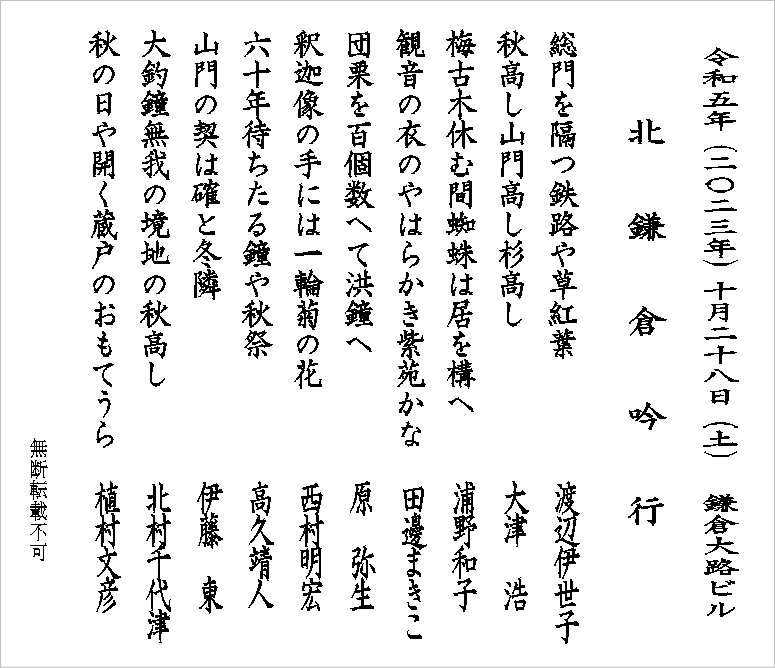 令和五年（二〇二三年）十月二十八日（土）　鎌倉大路ビル
北鎌倉吟行
総門を隔つ鉄路や草紅葉　渡辺伊世子
秋高し山門高し杉高し　大津　浩
梅古木休む間蜘蛛は居を構へ　浦野和子
観音の衣のやはらかき紫苑かな　田邊まきこ
団栗を百個数へて洪鐘へ　原　弥生
釈迦像の手には一輪菊の花　西村明宏
六十年待ちたる鐘や秋祭　高久靖人
山門の契は確と冬隣　伊藤　東
大釣鐘無我の境地の秋高し　北村千代津
秋の日や開く蔵戸のおもてうら　植村文彦
無断転載不可